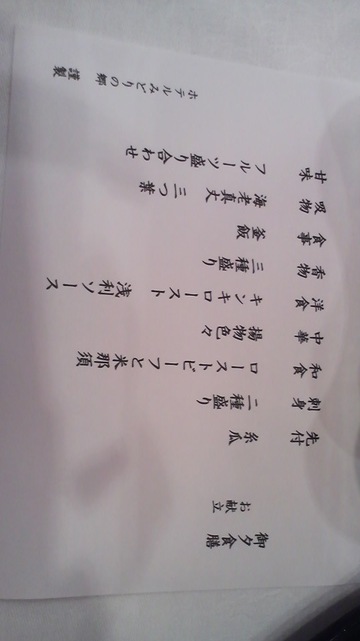 御夕食膳
お献立
先付 糸瓜
刺身 二種盛り
和食 ローストビーフと米那須
中華 揚物色々
洋食 キンキロースト 浅利ソース
香物 三種盛り
食事 釜飯
吸物 海老真丈 三つ葉
甘味 フルーツ盛り合わせ
ホテルみどりの郷 謹製